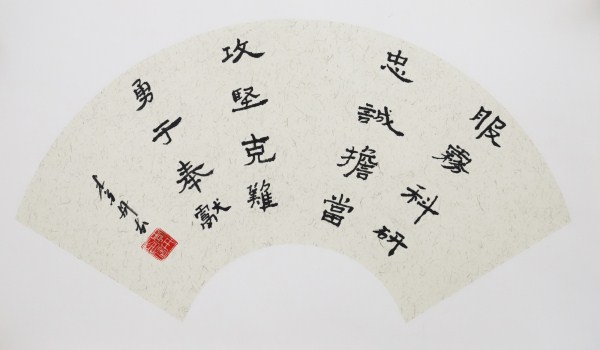 服霧科研
忠誠擔當
攻堅克難
勇于奉獻